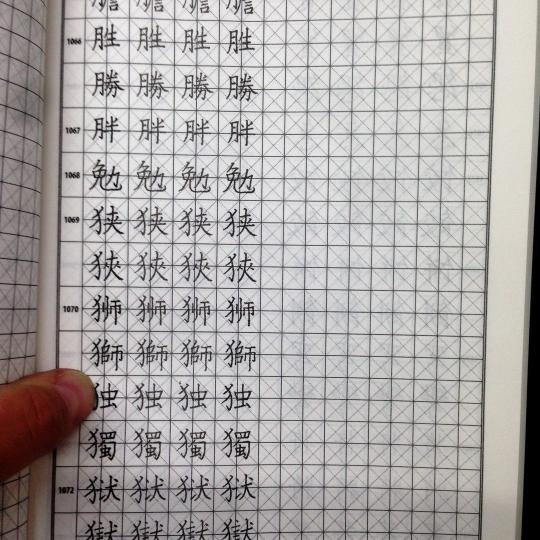 膽 膽 膽 膽
1066 胜 胜 胜 胜
勝 勝 勝 勝
1067 胖 胖 胖 胖
1068 勉 勉 勉 勉
1069 狭 狭 狭 狭
狹 狹 狹 狹
1070 狮 狮 狮 狮
獅 獅 獅 獅
独 独 独 独
獨 獨 獨 獨
1072 狱 狱 狱 狱
獄 獄 獄 獄